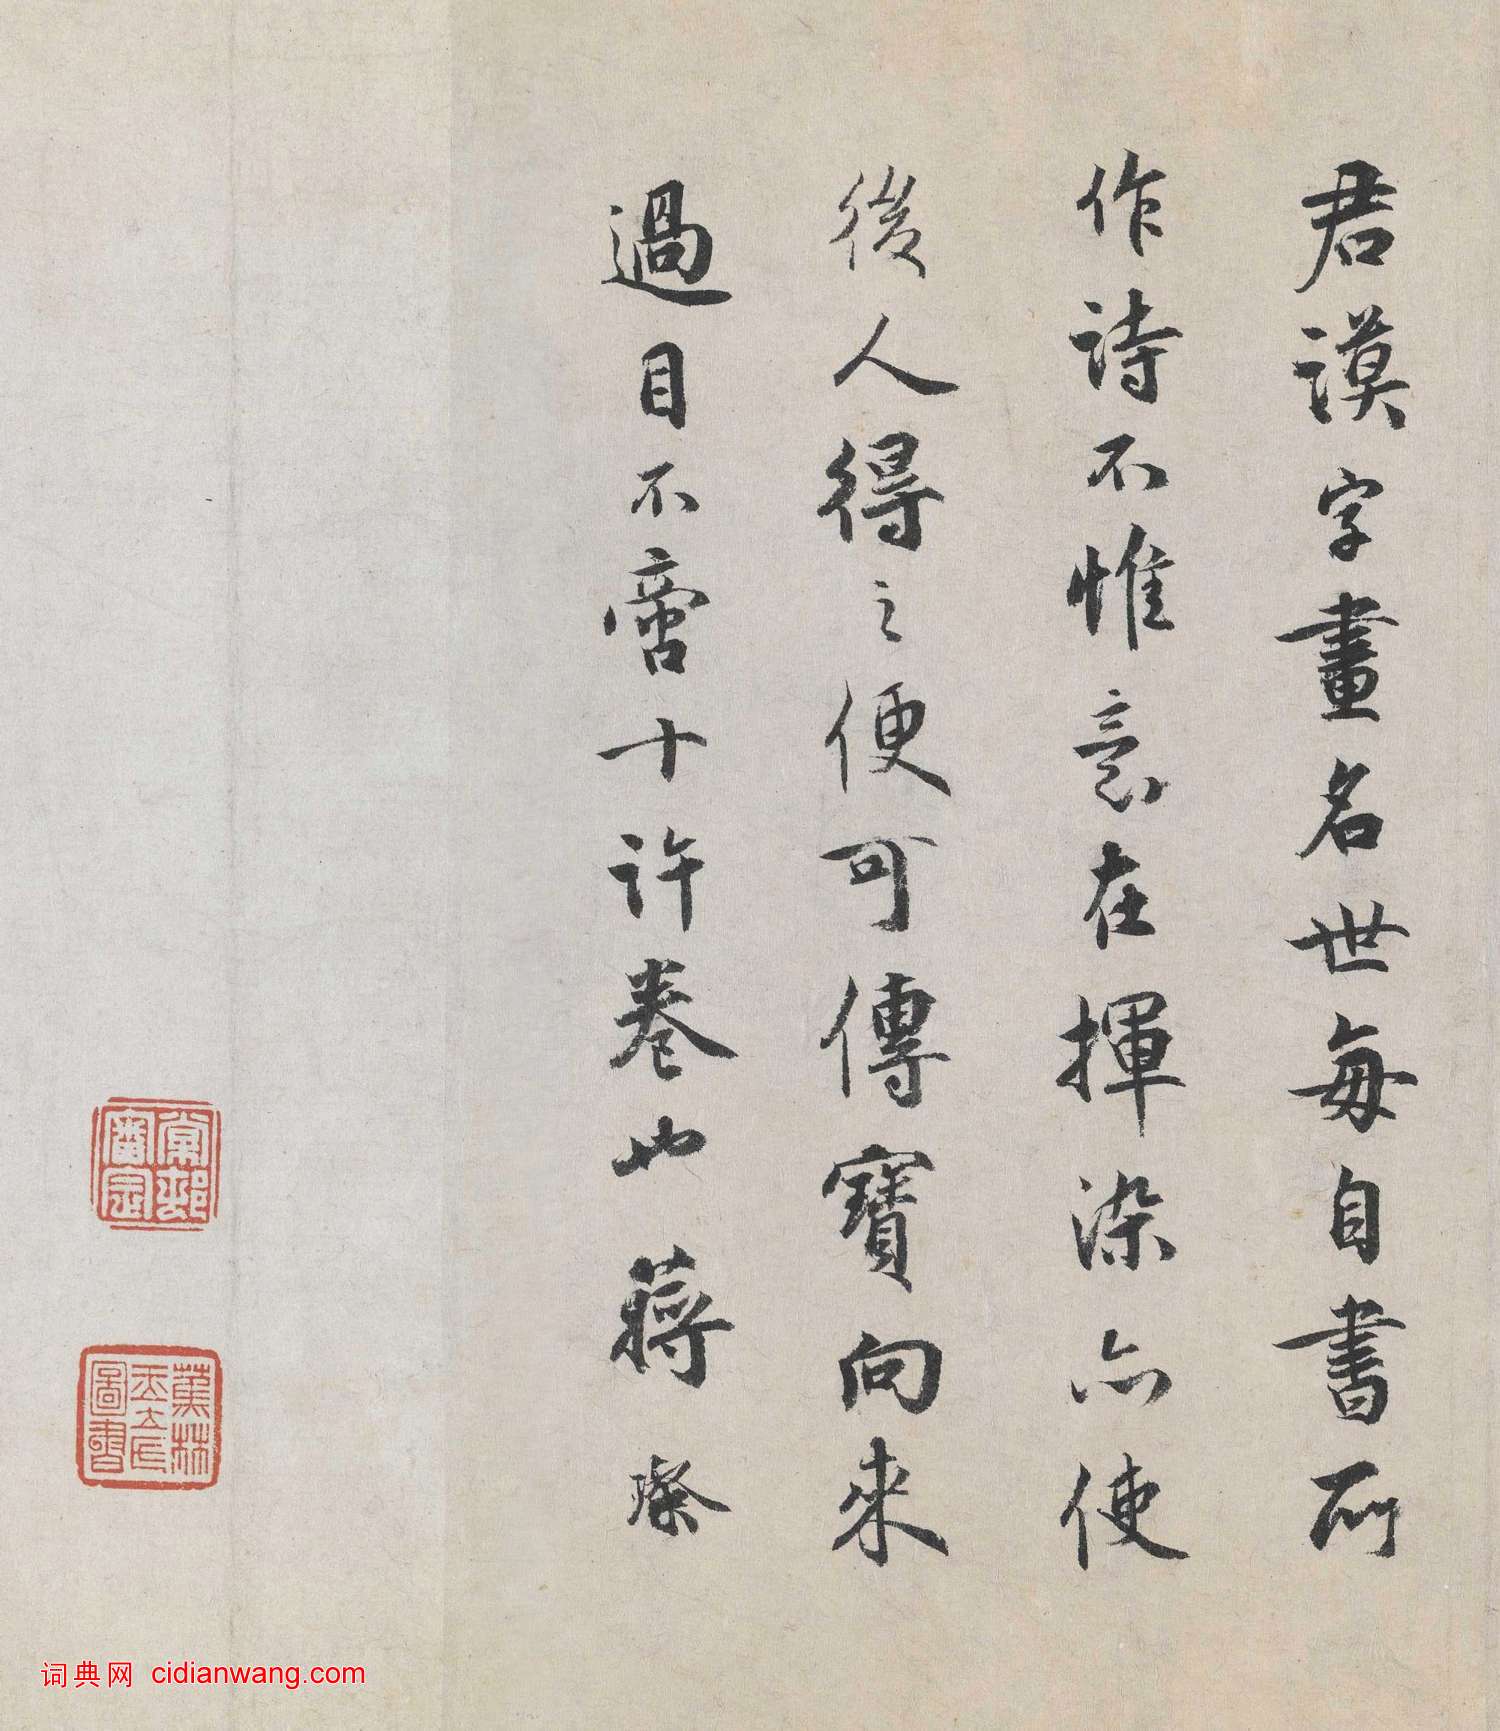 君謨字畫名世每自書所
作詩不惟意在揮染亦使
後人得之便可傳寶向來
過目不啻十許卷也蔣璨
棠邨審定
蕉林玉立氏圖書
词典网 cidianwang.com